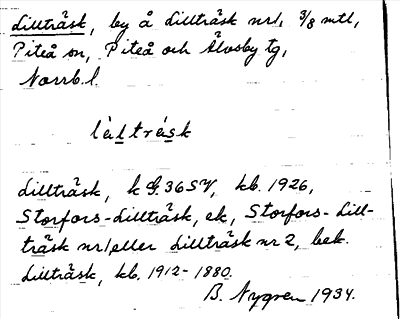 Lillträsk, by å Lillträsk nr1, 3/8 mtl,
Piteå sn, Piteå och Älvsby tg,
Norrb. l.
lìltrǻsk
Lillträsk, k G. 36 SV, kb. 1926,
Storfors-Lillträsk, ek, Storfors-Lill-
träsk nr1 eller Lillträsk nr 2, bek.
Lillträsk, kb. 1912-1880.
B. Nygren 1934.